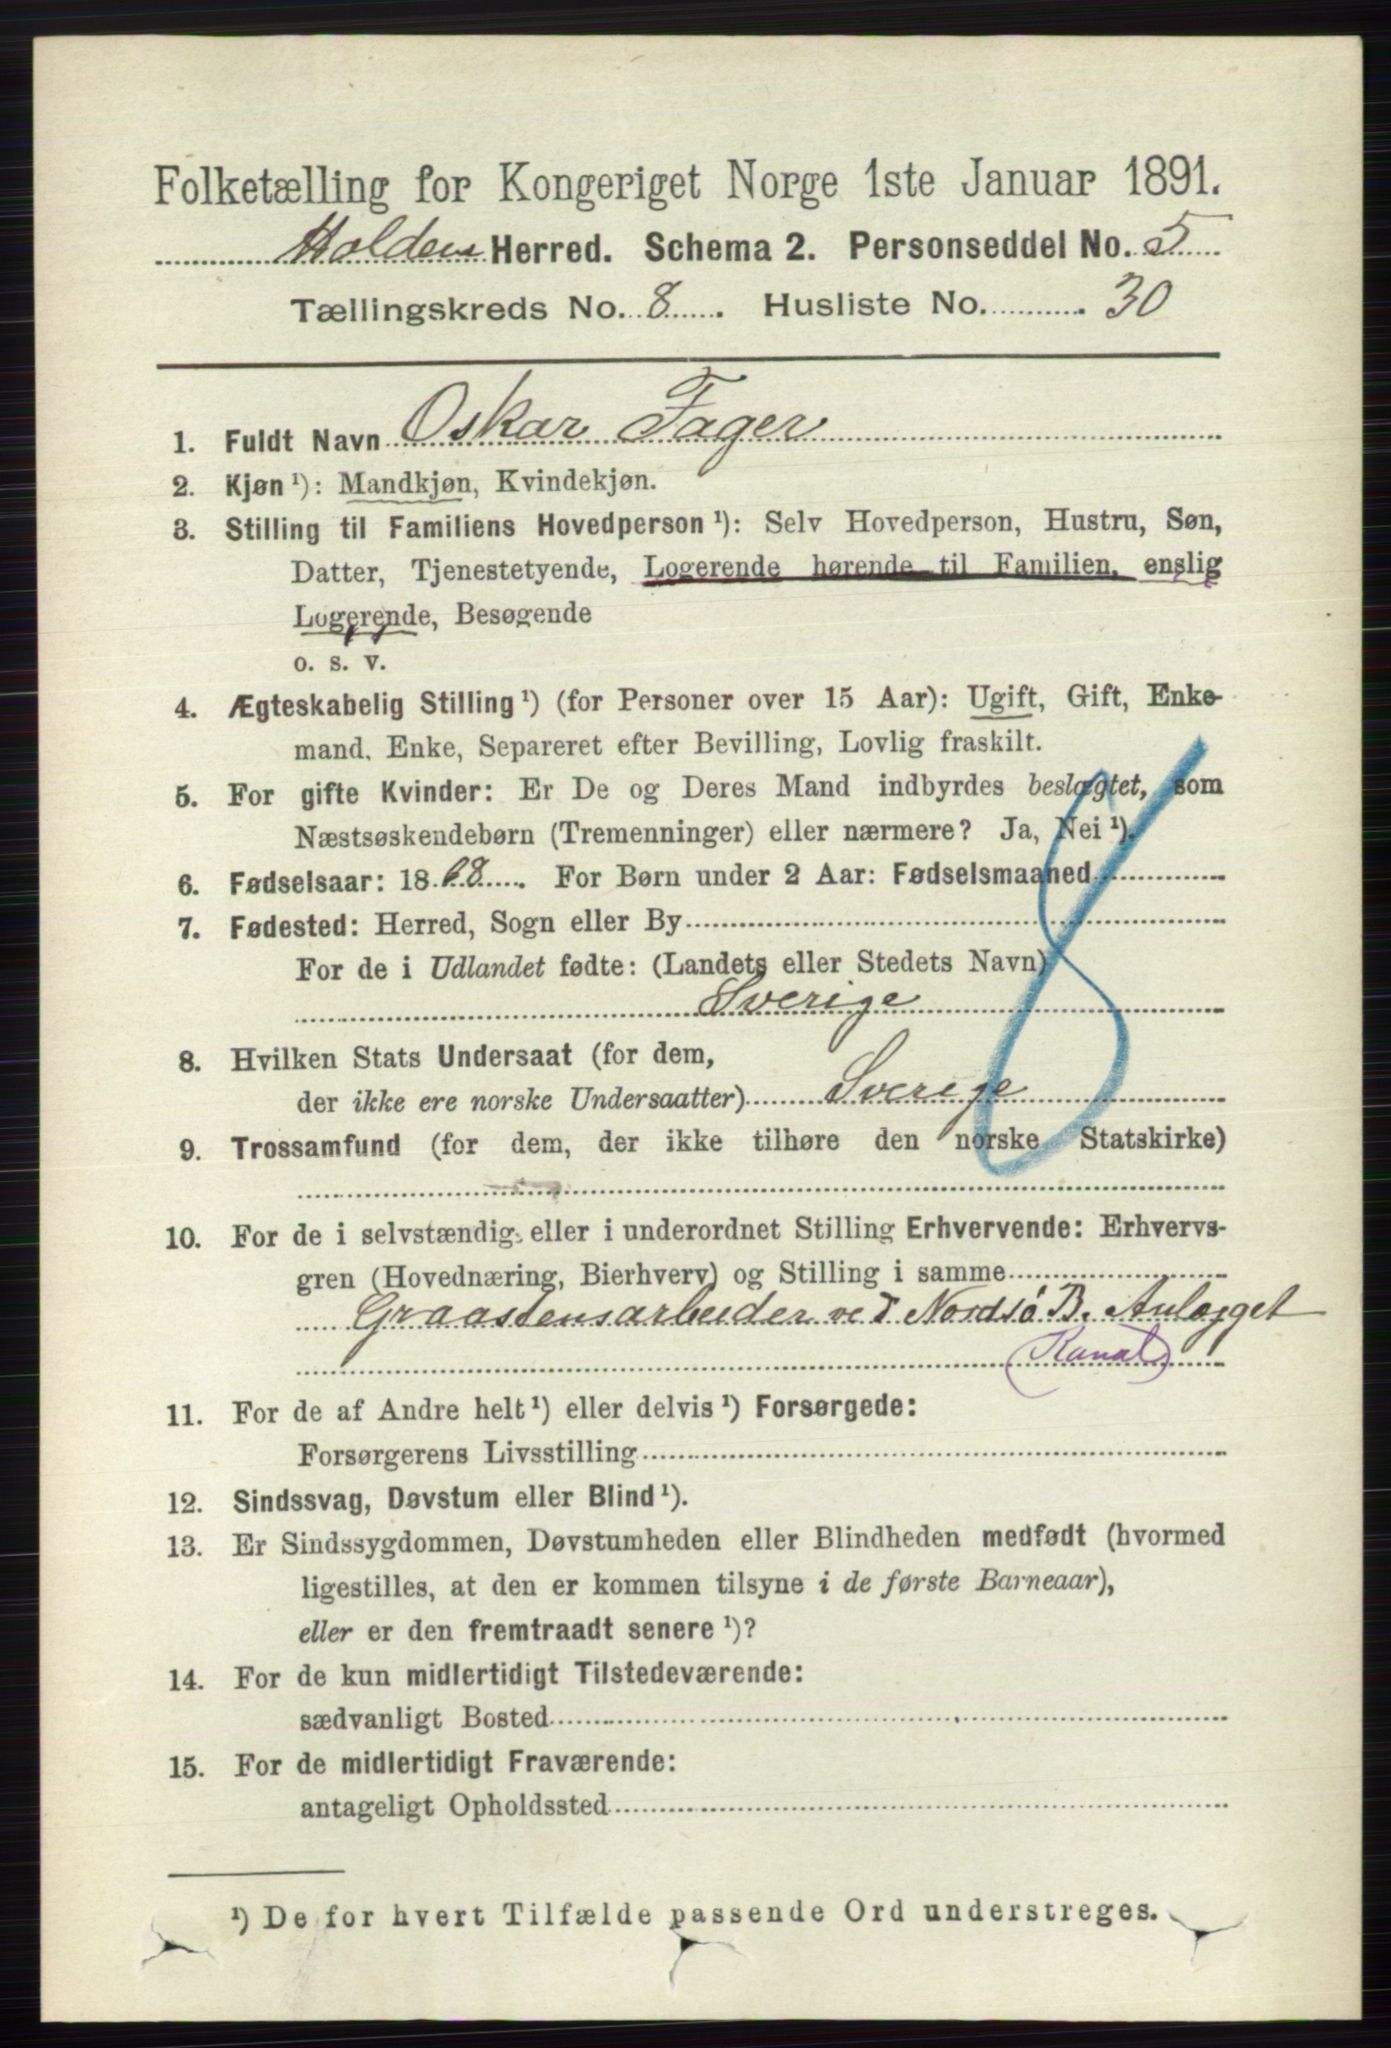 Folketælling for Kongeriget Norge 1ste Januar 1891.
Holden Herred. Schema 2. Personseddel No. 5
Tællingskreds No. 8. Husliste No. 30
1. Fuldt Navn Oskar Fager
2. Kjøn ¹): Mandkjøn, Kvindekjøn.
3. Stilling til Familiens Hovedperson ¹): Selv Hovedperson, Hustru, Søn,
Datter, Tjenestetyende, Logerende hørende til Familien, enslig
Logerende, Besøgende
o. s. v.
4. Ægteskabelig Stilling ¹) (for Personer over 15 Aar): Ugift, Gift, Enke-
mand, Enke, Separeret efter Bevilling, Lovlig fraskilt.
5. For gifte Kvinder: Er De og Deres Mand indbyrdes beslægtet, som
Næstsøskendebørn (Tremenninger) eller nærmere? Ja, Nei ¹).
6. Fødselsaar: 1868. For Børn under 2 Aar: Fødselsmaaned
7. Fødested: Herred, Sogn eller By
For de i Udlandet fødte: (Landets eller Stedets Navn)
Sverige
8. Hvilken Stats Undersaat (for dem,
der ikke ere norske Undersaatter) Sverige
9. Trossamfund (for dem, der ikke tilhøre den norske Statskirke)
10. For de i selvstændig eller i underordnet Stilling Erhvervende: Erhvervs-
gren (Hovednæring, Bierhverv) og Stilling i samme
Graastensarbeider ved Nordsö B. Anlægget
(Kanal)
11. For de af Andre helt ¹) eller delvis ¹) Forsørgede:
Forsørgerens Livsstilling
12. Sindssvag, Døvstum eller Blind ¹).
13. Er Sindssygdommen, Døvstumheden eller Blindheden medfødt (hvormed
ligestilles, at den er kommen tilsyne i de første Barneaar),
eller er den fremtraadt senere ¹)?
14. For de kun midlertidigt Tilstedeværende:
sædvanligt Bosted
15. For de midlertidigt Fraværende:
antageligt Opholdssted
¹) De for hvert Tilfælde passende Ord understreges.
8